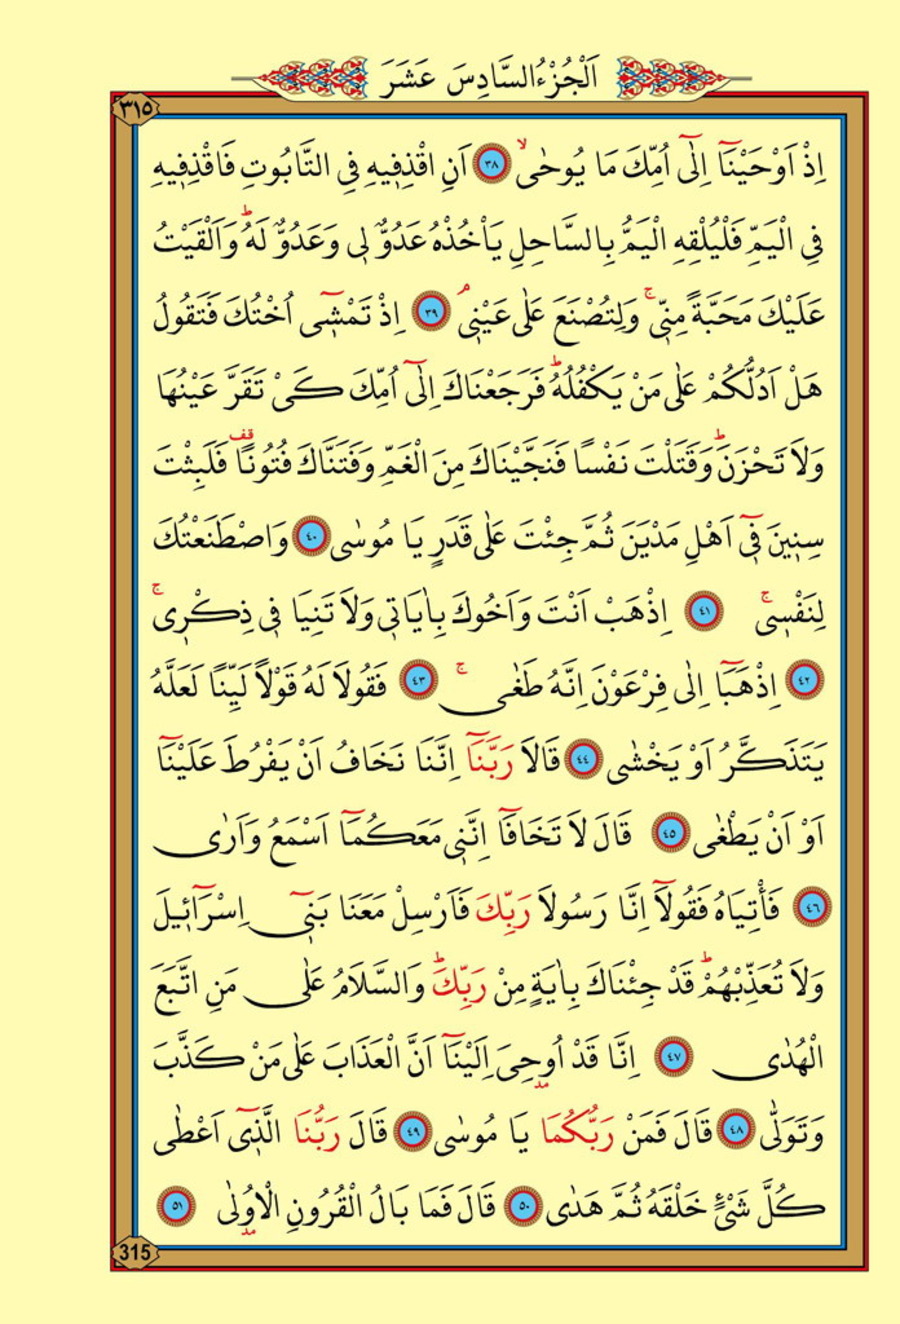 اَلْجُزْءُالسَّادِسَ عَشَرَ
٣١٥
اِذْ اَوْحَيْنَٓا اِلٰٓى اُمِّكَ مَا يُوحٰىۙ ٣٨ اَنِ اقْذِفٖيهِ فِي التَّابُوتِ فَاقْذِفٖيهِ
فِي الْيَمِّ فَلْيُلْقِهِ الْيَمُّ بِالسَّاحِلِ يَأْخُذْهُ عَدُوٌّ لٖي وَعَدُوٌّ لَهُؕ وَاَلْقَيْتُ
عَلَيْكَ مَحَبَّةً مِنّٖيۚ وَلِتُصْنَعَ عَلٰى عَيْنٖيۢ ٣٩ اِذْ تَمْشٖٓي اُخْتُكَ فَتَقُولُ
هَلْ اَدُلُّكُمْ عَلٰى مَنْ يَكْفُلُهُؕ فَرَجَعْنَاكَ اِلٰٓى اُمِّكَ كَيْ تَقَرَّ عَيْنُهَا
وَلَا تَحْزَنَؕ وَقَتَلْتَ نَفْسًا فَنَجَّيْنَاكَ مِنَ الْغَمِّ وَفَتَنَّاكَ فُتُونًا۠ قف فَلَبِثْتَ
سِنٖينَ فٖٓي اَهْلِ مَدْيَنَ ثُمَّ جِئْتَ عَلٰى قَدَرٍ يَا مُوسٰى ٤٠ وَاصْطَنَعْتُكَ
لِنَفْسٖيۚ ٤١ اِذْهَبْ اَنْتَ وَاَخُوكَ بِاٰيَاتٖي وَلَا تَنِيَا فٖي ذِكْرٖيۚ
٤٢ اِذْهَبَٓا اِلٰى فِرْعَوْنَ اِنَّهُ طَغٰىۚ ٤٣ فَقُولَا لَهُ قَوْلًا لَيِّنًا لَعَلَّهُ
يَتَذَكَّرُ اَوْ يَخْشٰى ٤٤ قَالَا رَبَّنَٓا اِنَّنَا نَخَافُ اَنْ يَفْرُطَ عَلَيْنَٓا
اَوْ اَنْ يَطْغٰى ٤٥ قَالَ لَا تَخَافَٓا اِنَّنٖي مَعَكُمَٓا اَسْمَعُ وَاَرٰى
٤٦ فَأْتِيَاهُ فَقُولَٓا اِنَّا رَسُولَا رَبِّكَ فَاَرْسِلْ مَعَنَا بَنٖٓي اِسْرَٓائٖيلَ
وَلَا تُعَذِّبْهُمْؕ قَدْ جِئْنَاكَ بِاٰيَةٍ مِنْ رَبِّكَؕ وَالسَّلَامُ عَلٰى مَنِ اتَّبَعَ
الْهُدٰى ٤٧ اِنَّا قَدْ اُو۫حِيَ اِلَيْنَٓا اَنَّ الْعَذَابَ عَلٰى مَنْ كَذَّبَ
وَتَوَلّٰى ٤٨ قَالَ فَمَنْ رَبُّكُمَا يَا مُوسٰى ٤٩ قَالَ رَبُّنَا الَّذٖٓي اَعْطٰى
كُلَّ شَيْءٍ خَلْقَهُ ثُمَّ هَدٰى ٥٠ قَالَ فَمَا بَالُ الْقُرُونِ الْاُو۫لٰى ٥١
315